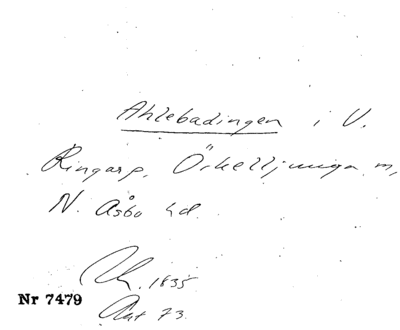 Ahlebadingen i V.
Ringarp, Örkelljunga m,
N. Åsbo hd.
1835
Nr 7479
73